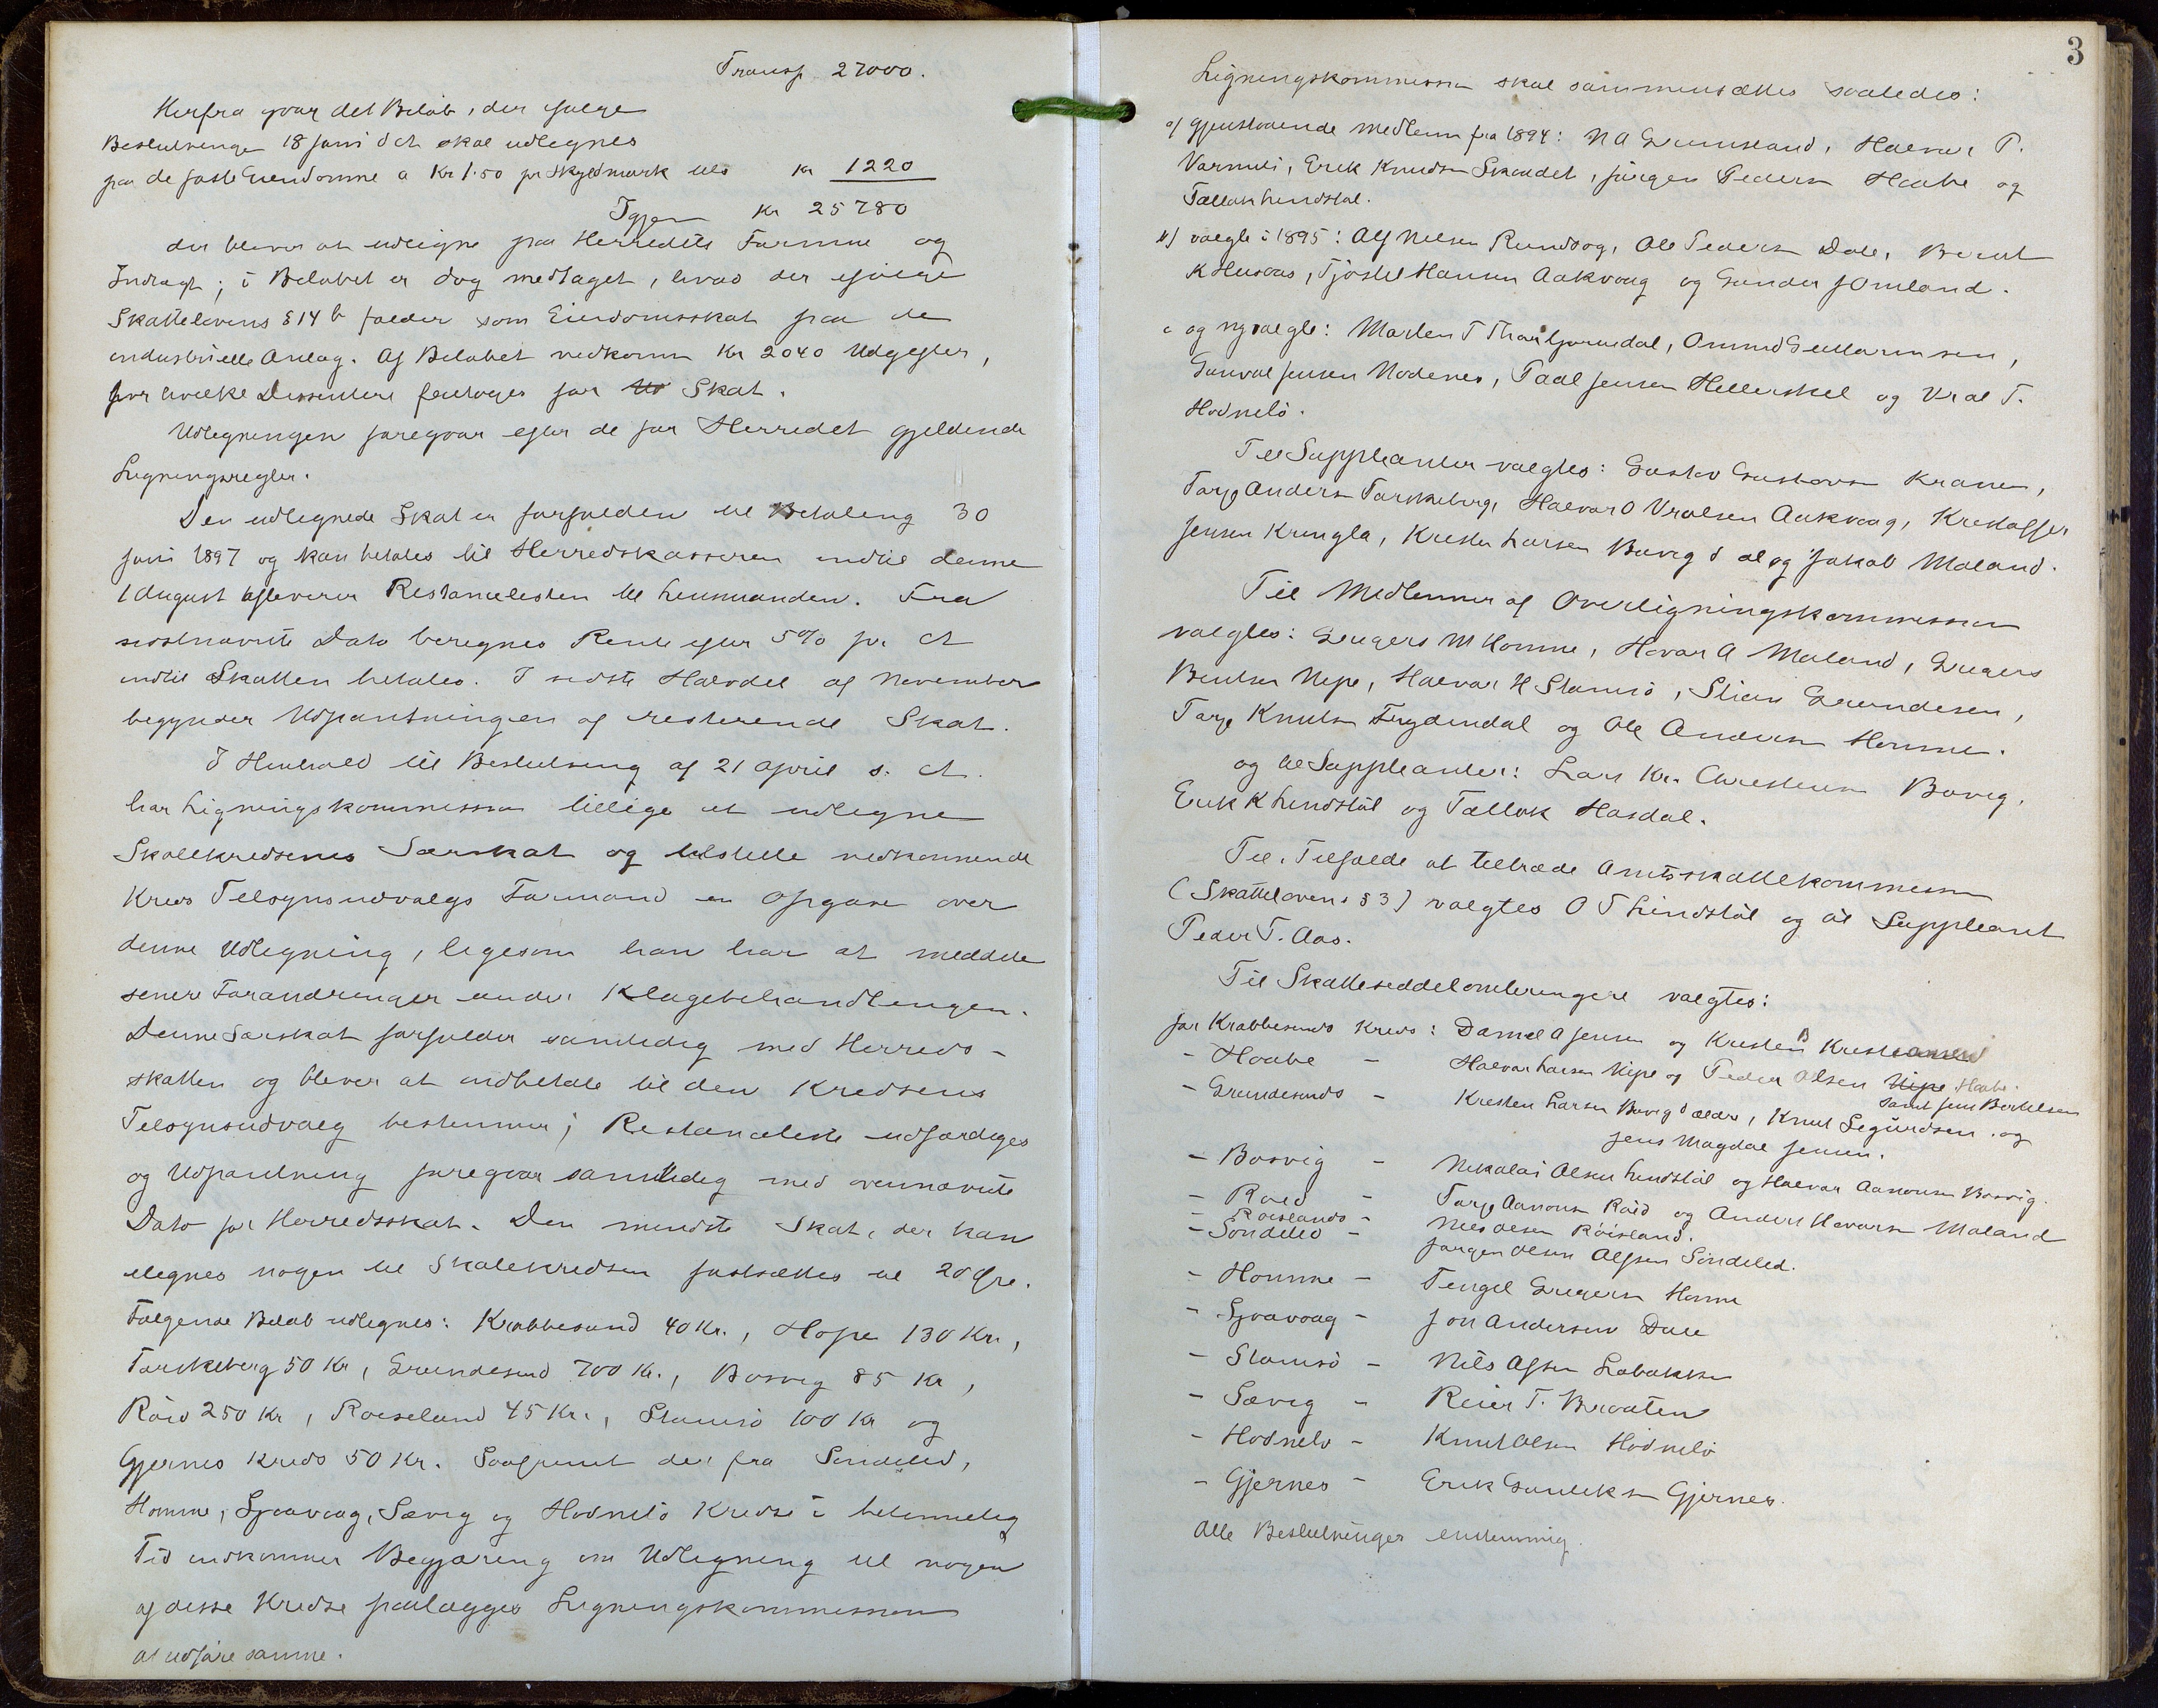 Transp 27000.
Herfra gaar det Beløb, der ifølge
Beslutninger 18 Juni d At skal udlegnes
paa de faste Eiendomme a Kr 1.50 pr Skyldmark tils Kr 1220
Igjen Kr 25780
der bliver at udligne paa Herredets Formue og
Indtægt; i Beløbet er dog medtaget, hvad der ifølge
Skattelovens § 14 b falder som Eiendomsskat paa de
industrielle Anlæg. Af Beløbet vedkomm Kr 2040 Udgifter,
for hvilke Dissentere fritages for Skat.
Udlegningen foregaar efter de for Herredet gjeldende
Ligningsregler.
Den udlegnede Skat er forfalden til Betaling 30
Juni 1897 og kan betales til Herredskassereren indtil denne
1 August afleverer Restancelisten til Lensmanden. Fra
sidstnævnte Dato beregnes Rente efter 5% pr At
indtil Skatten betales. I sidste Halvdel af November
begynder Udpantningen af resterende Skat.
I Henhold til Beslutning af 21 April s. At.
har Ligningskommissionen tillige at udlegne
Skolekredsenes Særskat og tilstille vedkommende
Kreds Tilsynsudvalgs Formand en Opgave over
denne Udlegning, ligesom han har at meddele
senere Forandringer under Klagebehandlingen.
Denne Særskat forfalder samtidig med Herreds-
skatten og bliver at indbetale til den Kredsens
Tilsynsudvalg bestemmer; Restanceliste udfærdiges
og Udpantning foregaar samtidig med ovennævnte
Dato for Herredsskat. Den mindste Skat, der kan
ilegnes nogen til Skolekredsen fastsættes til 20 Øre.
Følgende Beløb udlegnes: Krabbesund 40 Kr., Hope 130 Kr,
Torskeberg 50 Kr, Grundesund 700 Kr., Bosvig 85 Kr,
Røid 250 Kr, Roiseland 45 Kr., Stamsø 100 Kr og
Gjernes Kreds 50 Kr. Saafremt der fra Søndeled,
Homme, Sjaavaag, Sævig og Hødnebø Kredse i betimelig
Tid indkommer Begjæring om Udlegning til nogen
af disse Kredse paalægges Ligningskommissionen
at udføre samme.
3
Ligningskommissionen skal sammensættes saaledes:
a) gjenstaaende Medlemmer fra 1894: N A Grumsland, Halvor P.
Varmuli, Erik Knudsen Skaadet, Jørgen Pedersen Haabe og
Tallak Lindstøl.
b) valgte i 1895: Alf Nilsen Rundsag, Ole Pedersen Dale, Berent
K Husaas, Tjøstel Hansen Aakvaag og Gunder J Omland.
c og nyvalgte: Marten T Thorbjørnsdal, Onund Guttormsen,
Gunval Jensen Nodenes, Paal Jensen Hellerskel og Vral T.
Hødnebø.
Til Suppleanter valgtes: Gustav Gustavsen Kranen,
Tarje Andersen Torskeberg, Halvor O Vralsen Aakvaag, Kristoffer
Jensen Krengla, Kristen Larsen Bovig d æl og Jakob Moland.
Til Medlemmer af Overligningskommissionen
valgtes: Gregers M Homme, Havor A Moland, Gregers
Bentsen Nipe, Halvor H Stamsø, Stian Grundesen,
Tarje Knutsen Frydendal og Ole Andersen Homme.
og til Suppleanter: Lars Kr. Christensen Bovig,
Erik K Lindstøl og Tallak Hasdal.
Til i Tilfælde at tiltræde Amtsskattekommissionen
(Skattelovens § 3) valgtes O T Lindstøl og til Suppleant
Peder T. Aas.
Til Skatteseddelombringere valgtes:
for Krabbesunds Kreds: Daniel A Jensen og Kristen B Kristiansen
- Haabe - Halvor Larsen Nipe og Peder Olsen Nipe Haabe.
samt Jens Bertelsen
- Grundesunds - Kristen Larsen Bovig d ældre, Knut Sigurdsen og
Jens Magdal Jensen.
- Bosvig - Nikolai Olsen Lindstøl og Halvor Aanonsen Bosvig.
- Røed - Tarje Aanonsen Røid og Anders Havorsen Moland
- Roislands - Nils Olsen Røisland.
- Søndeled - Jørgen Olsen Alfsen Søndeled.
- Homme - Tengel Gregersen Homme
- Sjaavaag - Jon Andersen Dale
- Stamsø - Nils Alfsen Labakken
- Sævig - Reier T. Braaten
- Hødnebø - Knut Olsen Hødnebø
- Gjernes - Erik Gunleksen Gjernes.
Alle Beslutninger enstemmig.